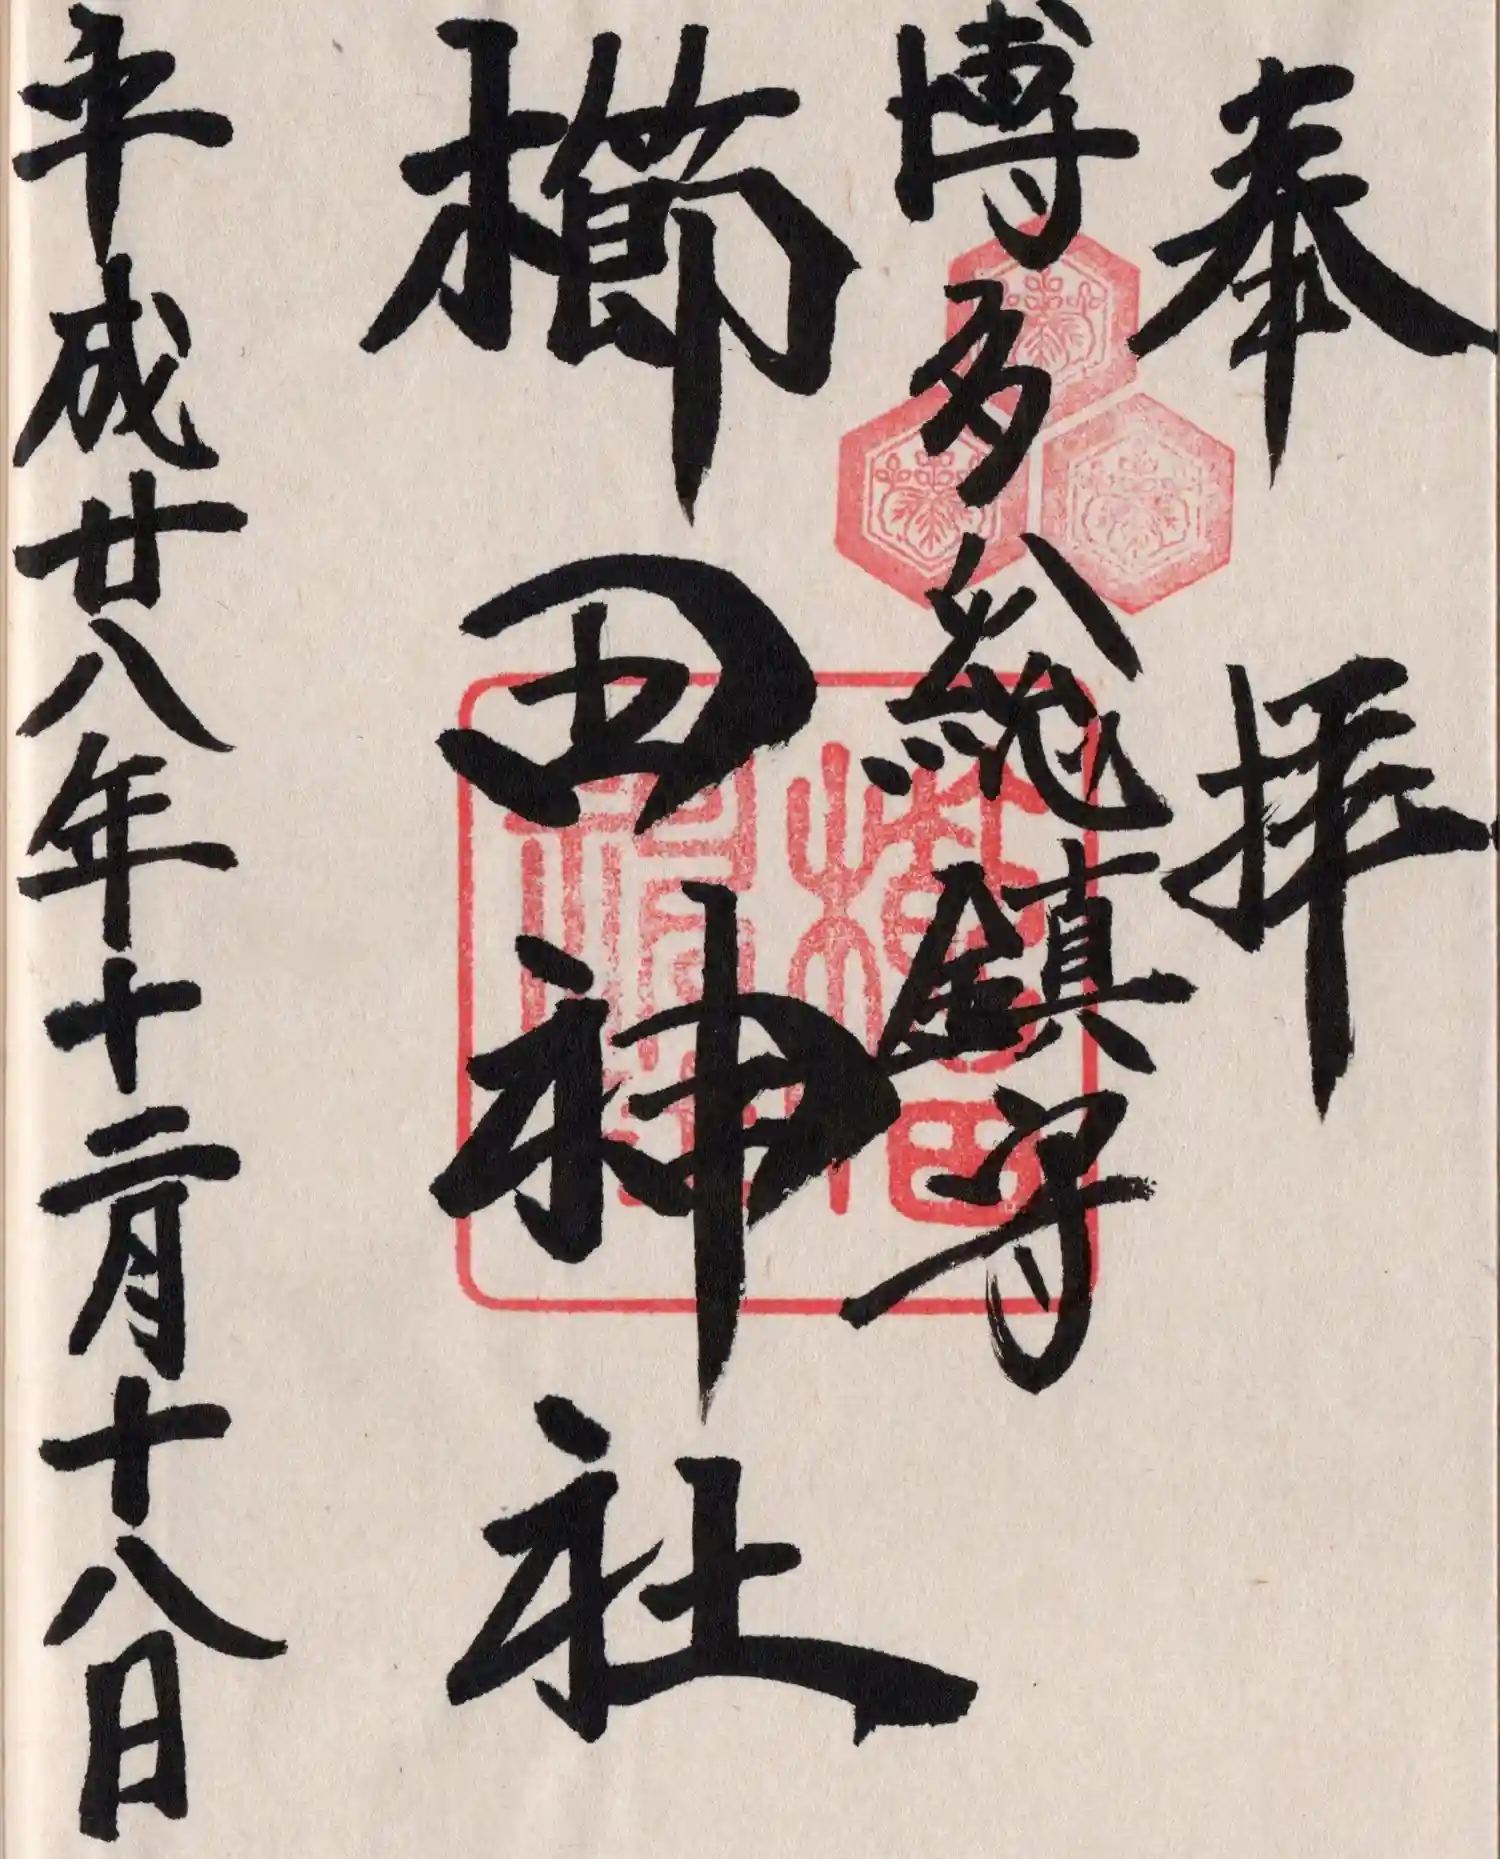 奉拝
博多総鎮守
櫛田神社
平成廿八年十二月十八日